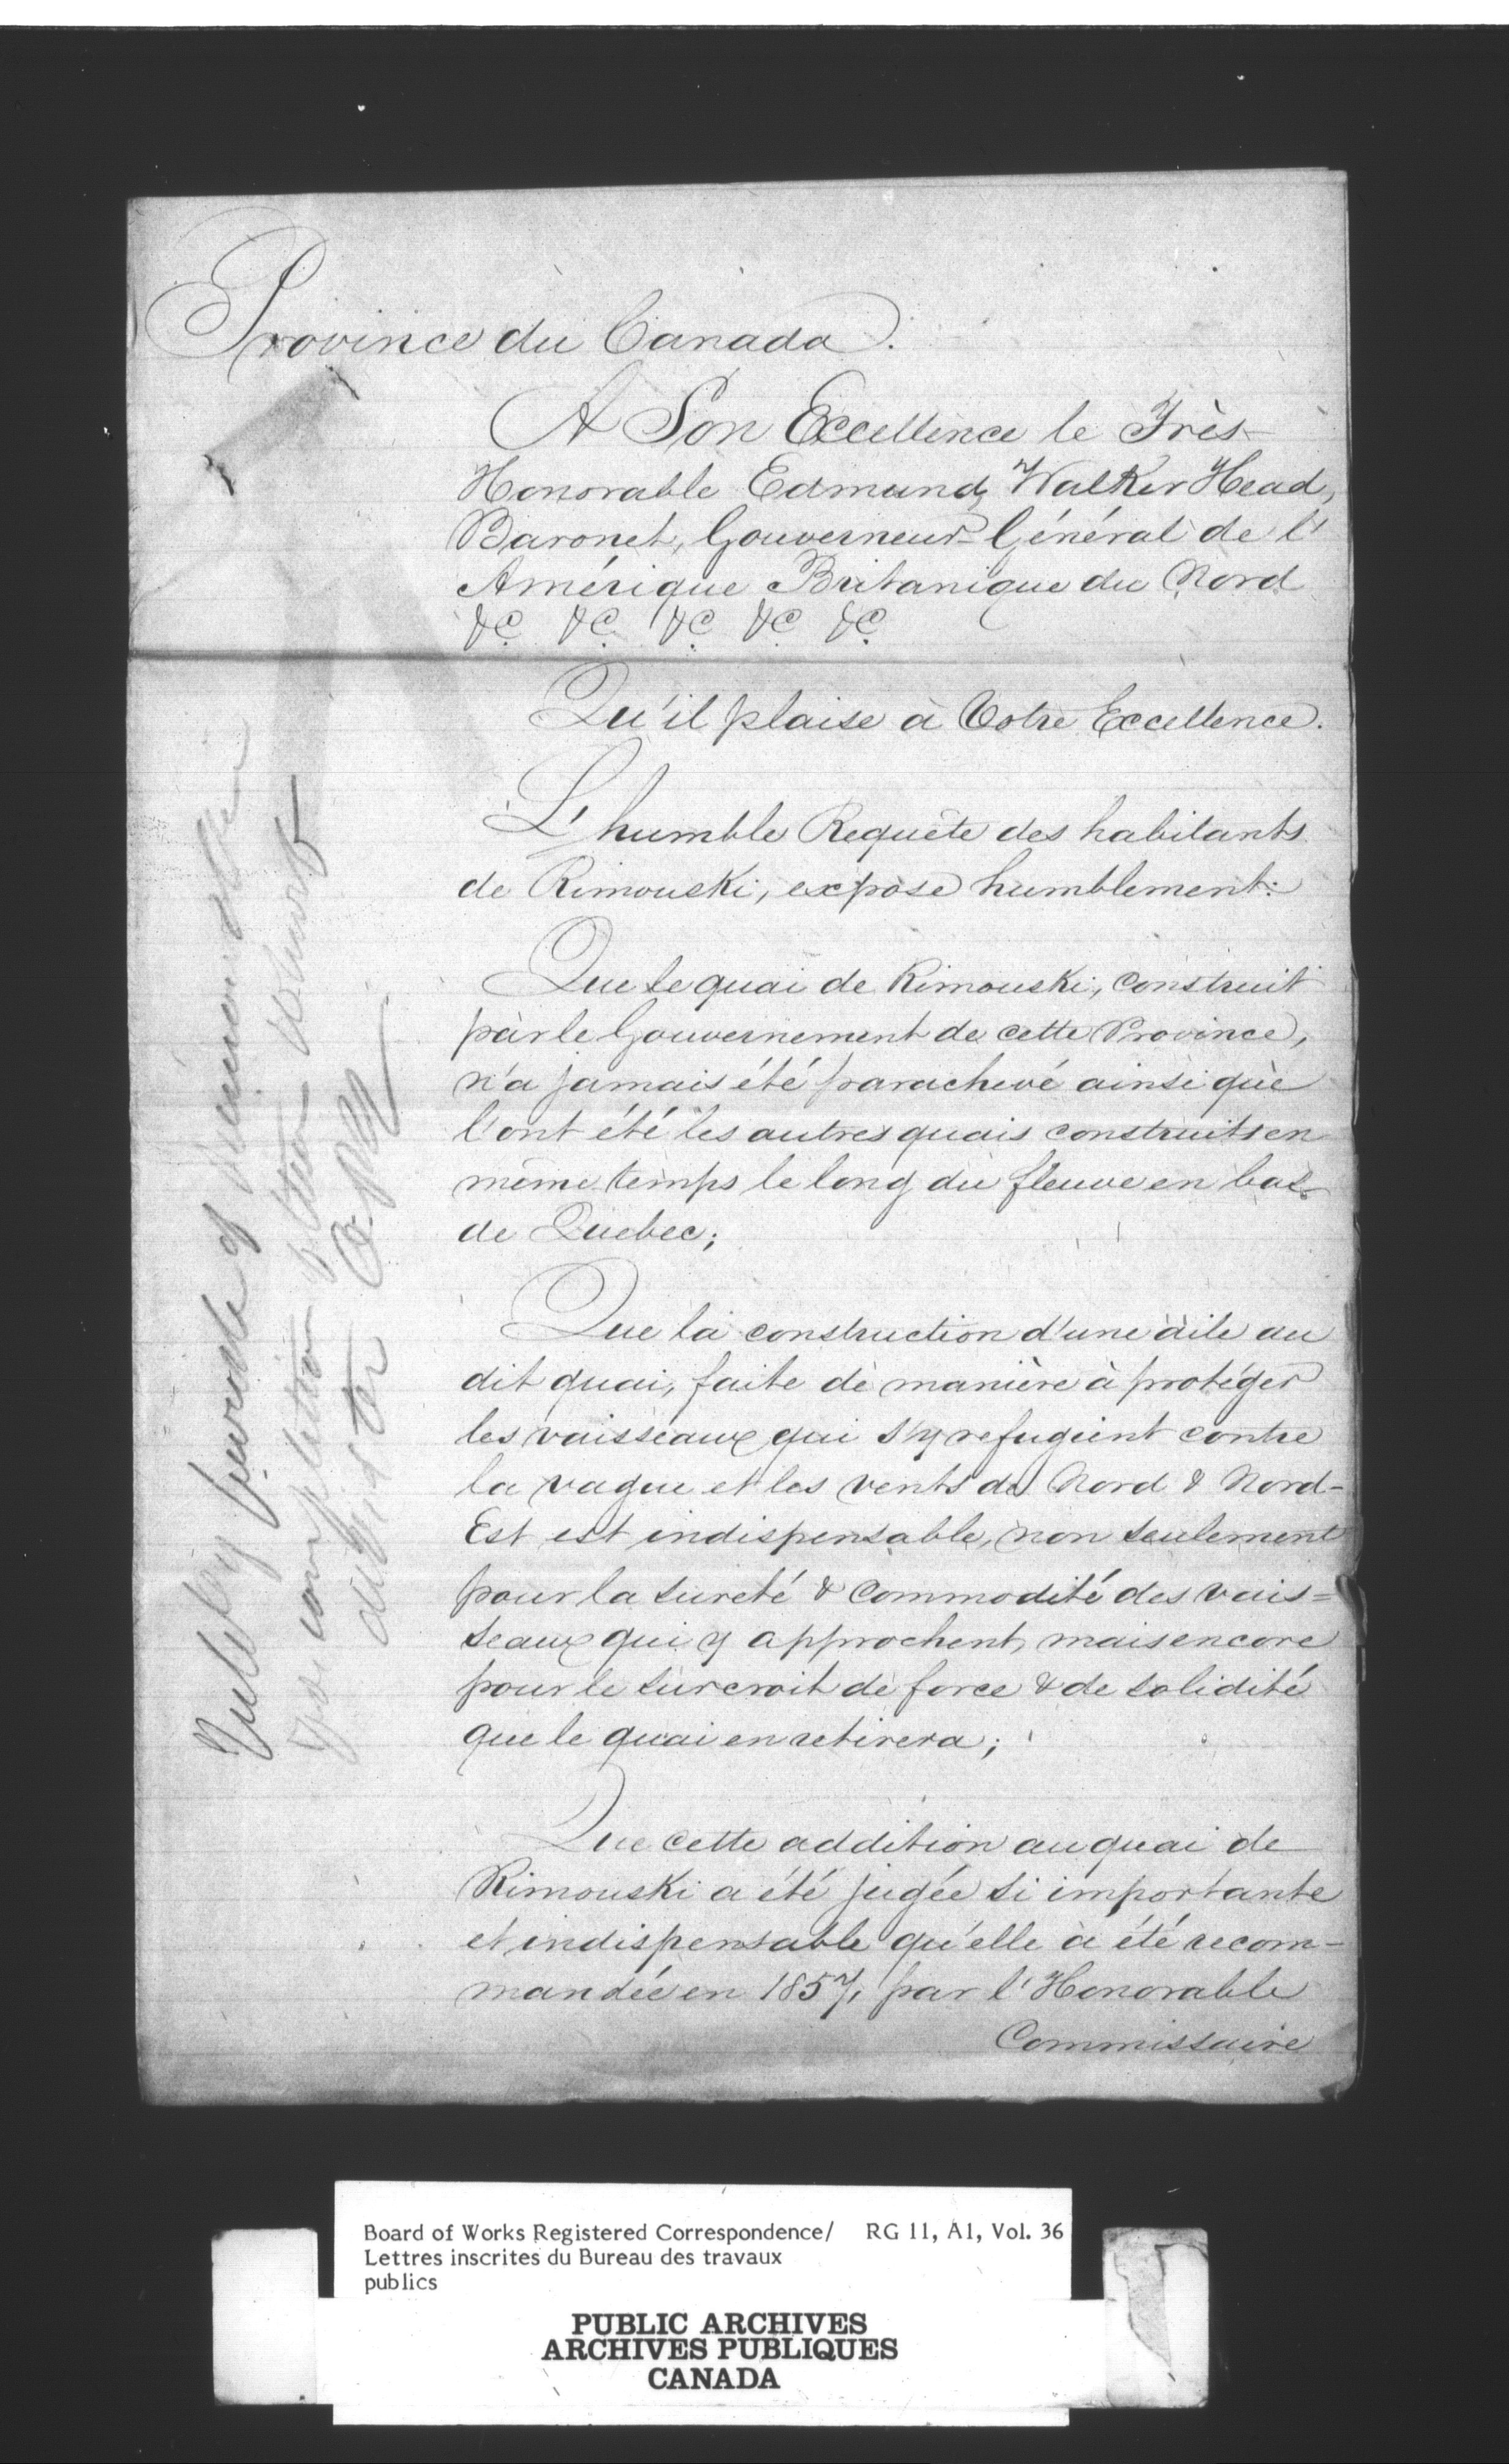 Province du Canada.
A Son Excellence le Très-
Honorable Edmund Walker Head,
Baronet, Gouverneur-Général de l'
Amérique Britanique du Nord
&c &c &c &c &c
Qu'il plaise à Votre Excellence.
L'humble Requête des habitants
de Rimouski, expose humblement:
Que le quai de Rimouski, construit
par le Gouvernement de cette Province,
n'a jamais été parachevé ainsi que
l'ont été les autres quais construits en
même temps le long du fleuve en bas
de Québec;
Que la construction d'une aile au
dit quai, faite de manière à protéger
les vaisseaux qui s'y refugient contre
la vague et les vents de Nord & Nord-
Est est indispensable, non seulement
pour la sureté & commodité des vais=
seaux qui y approchent, mais encore
pour le surcroit de force & de solidité
que le quai en retirera;
Que cette addition au quai de
Rimouski a été jugée si importante
et indispensable qu'elle a été recom-
mandée en 1857, par l'Honorable
Commissaire
of
for completion
Board of Works Registered Correspondence/ RG 11, A1, Vol. 36
Lettres inscrites du Bureau des travaux
publics
PUBLIC ARCHIVES
ARCHIVES PUBLIQUES
CANADA